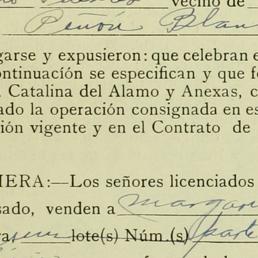 vecino de
Peñon Blan
garse y expusieron: que celebran e
ontinuación se especifican y que f
Catalina del Alamo y Anexas, c
ado la operación consignada en es
ión vigente y en el Contrato de
IERA:—Los señores licenciados
sado, venden a Margari
ra, lote(s) Núm.(s) parte